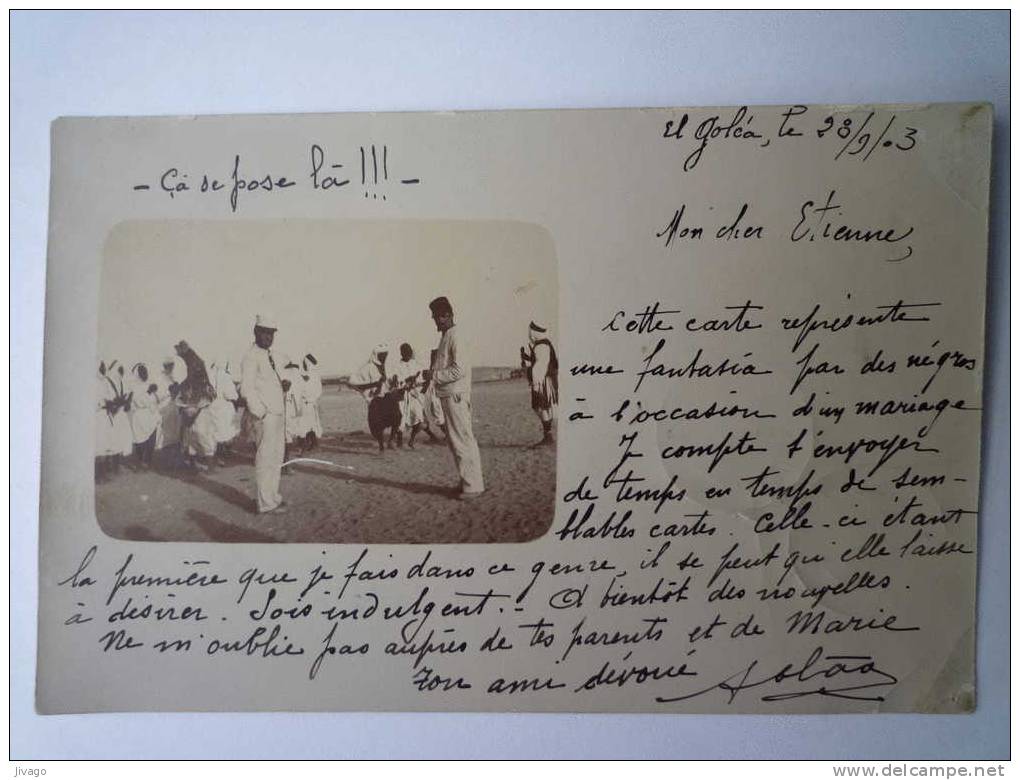 El Goléa, le 28/9/03
- Ça se pose là !!! -
Mon cher Etienne,
Cette carte représente
une fantasia par des négros
à l'occasion d'un mariage
Je compte t'envoyer
de temps en temps de sem-
blables cartes. Celle-ci étant
la première que je fais dans ce genre, il se peut qu'elle laisse
à désirer. Sois indulgent. - A bientôt des nouvelles.
Ne m'oublie pas auprès de tes parents et de Marie
Ton ami dévoué
jivago
http://www.delcampe.net